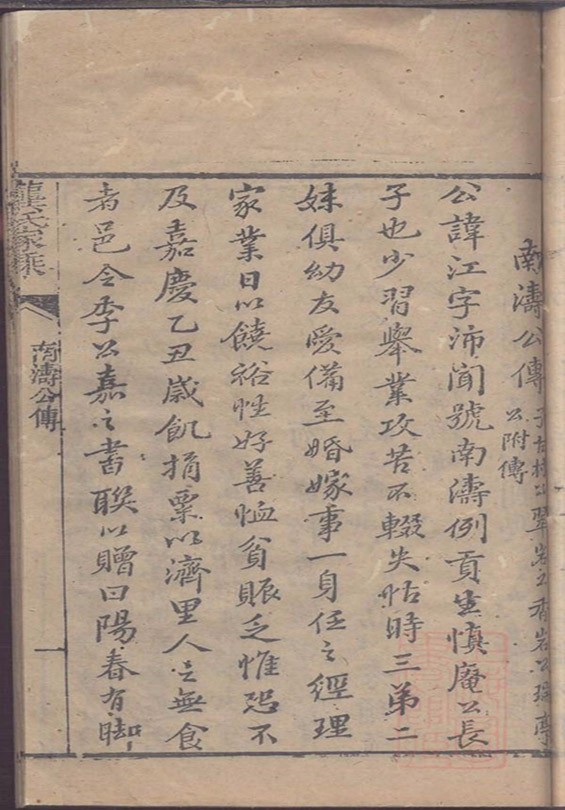 南濤公傳 子古村公翠岩公香岩公
公附傳
公諱江字沛聞號南濤例貢生慎庵公長
子也少習舉業攻苦不輟失怙時三弟二
妹俱幼友愛備至婚嫁事一身任之經理
家業日以饒裕性好善恤貧賑乏惟恐不
及嘉慶乙丑歲飢捐粟以濟里人之無食
者邑令李公嘉之書聯以贈曰陽春有脚
龔氏家乘
南濤公傳
一